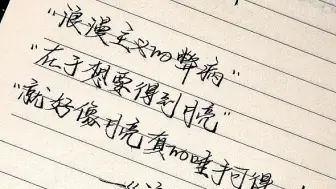 “浪漫主义的弊病”
“在于想要得到月亮”
“就好像月亮真的唾手可得
—《